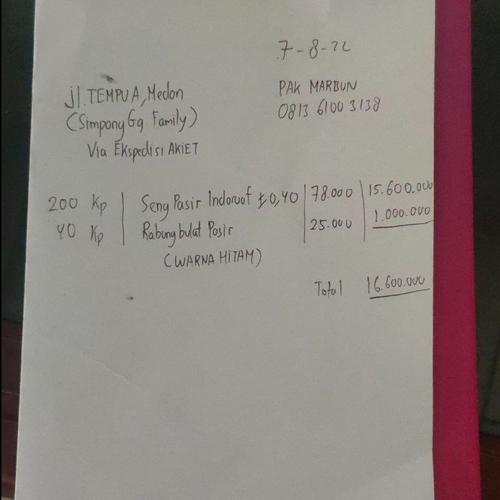 7-8-22
jl. TEMPUA, Medan
PAK MARBUN
0813 6100 3138
(Simpang Gg Family)
Via EKspedisi AKIET
200 Kp Seng Pasir Indoroof ± 0,40 78.000 15.600.000
40 Kp Rabung bulat Pasir 25.000 1.000.000
(WARNA HITAM)
Total 16.600.000